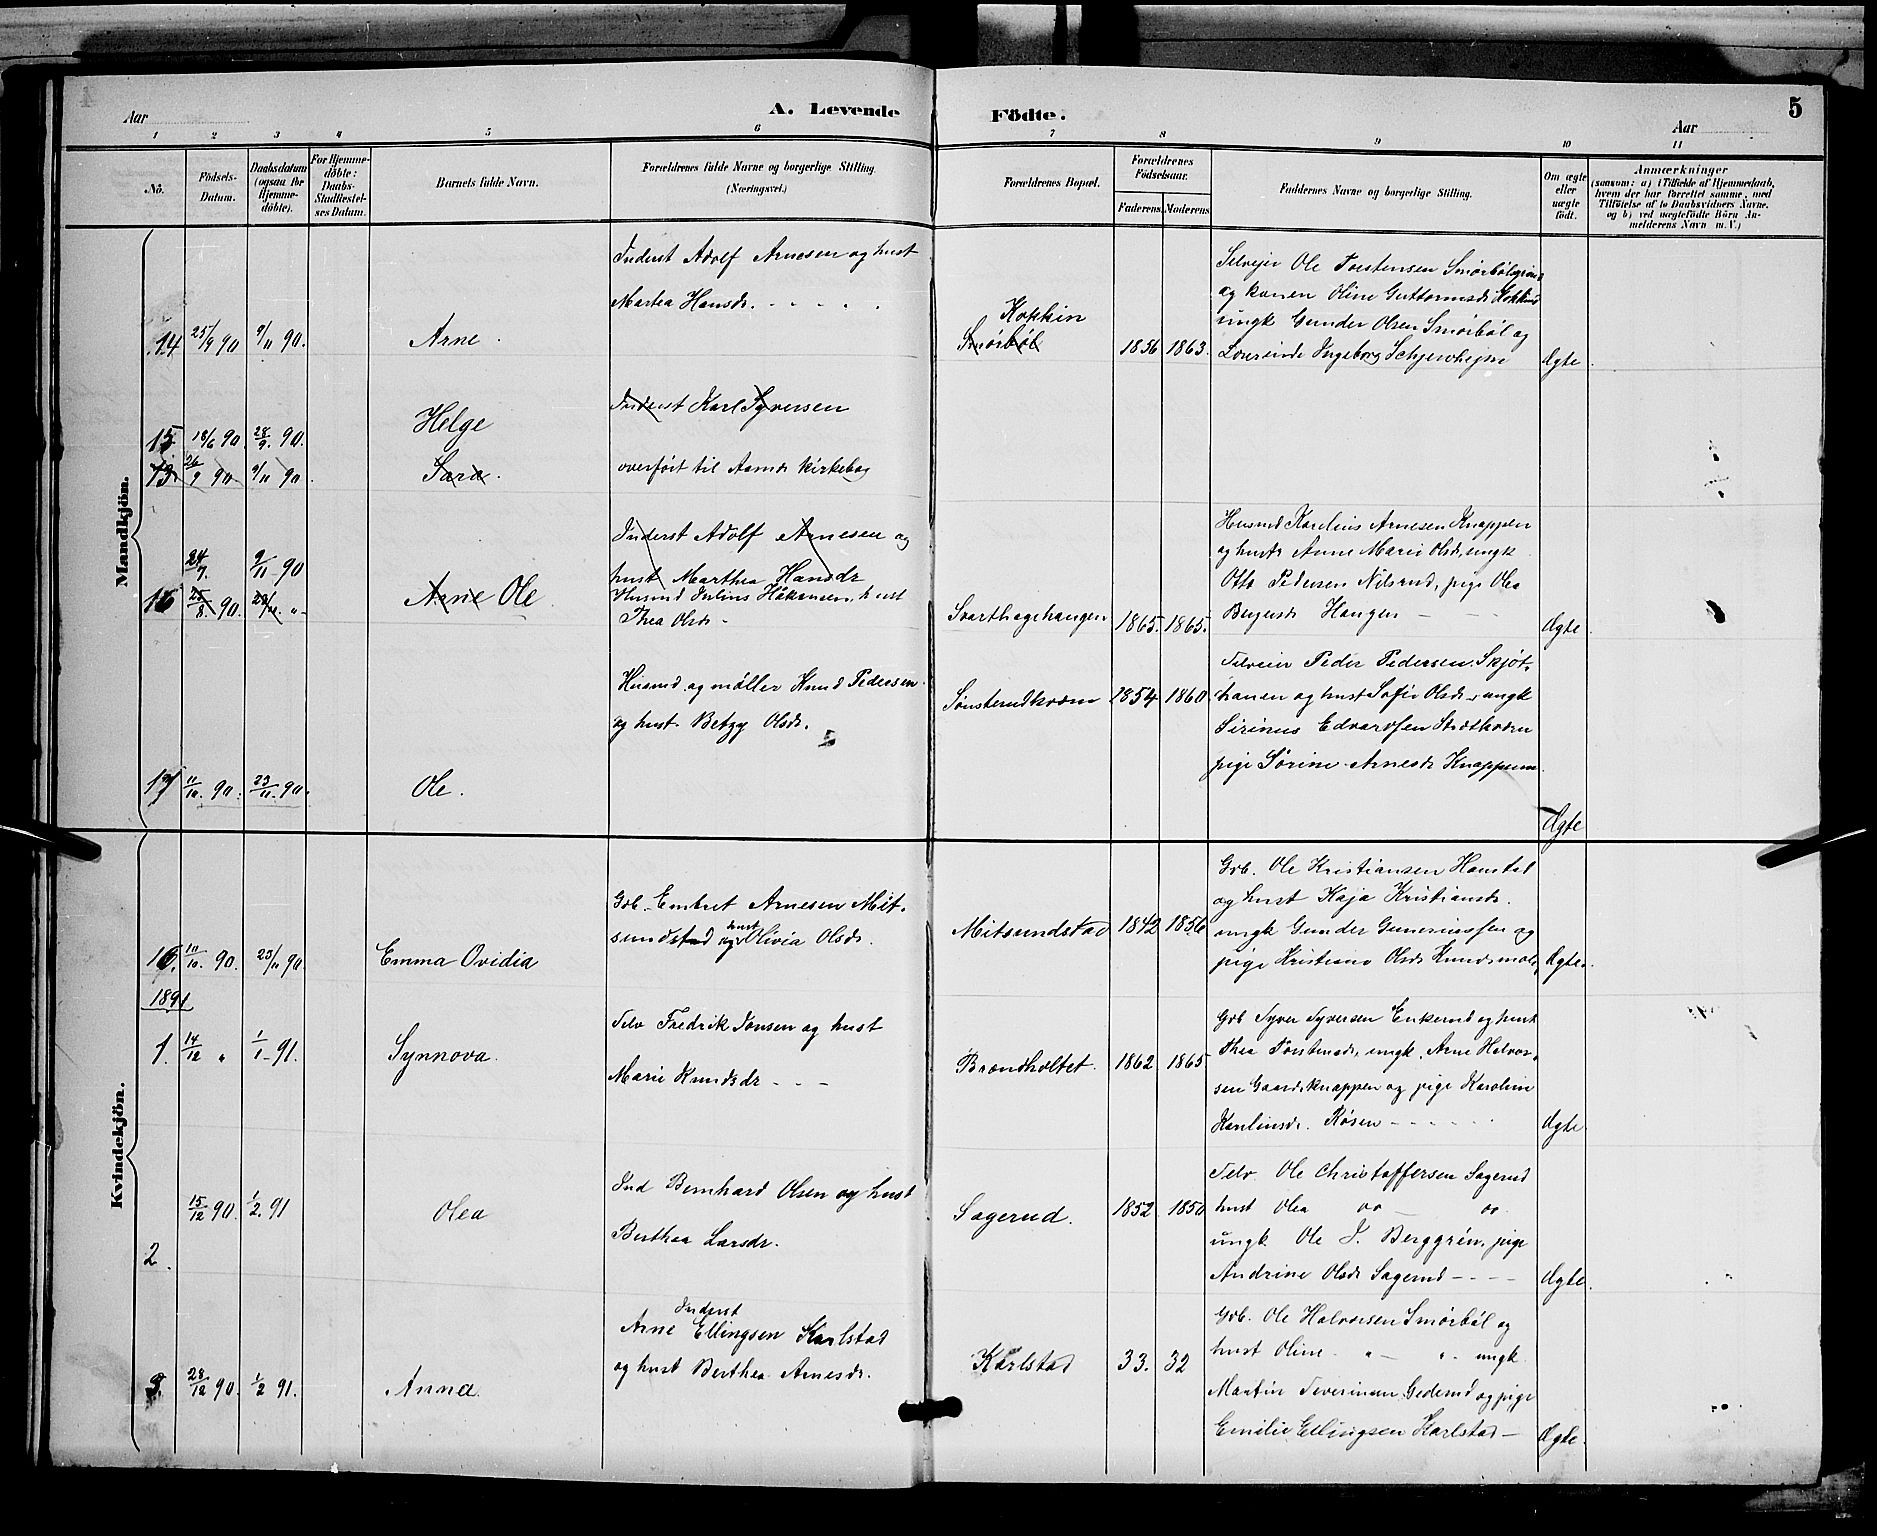 A. Levende Födte.
5
Aar
Aar
1 2 3 4 5 6 7 8 9 10 11
No.
Födsels-
Datum.
Daabsdatum
(ogsaa for
Hjemme-
döbte).
For Hjemme-
döbte:
Daabs-
Stadfæstel-
ses Datum.
Barnets fulde Navn.
Forældrenes fulde Navne og borgerlige Stilling
(Næringsvei.)
Forældrenes Bopæl.
Forældrenes
Födselsaar.
Faderens Moderens
Faddernes Navne og borgerlige Stilling.
Om ægte
eller
uægte
födt.
Anmærkninger
(saasom: a) i Tilfælde af Hjemmedaab,
hvem der har forrettet samme, med
Tilföielse af to Daabsvidners Navne.
og b) ved uægtefödte Börn An-
melderens Navn m. V.)
Mandkjön.
14 25/9 90 9/11 90. Arne
Inderst Adolf Arnesen og hust
Martea Hansdr.
Kopkin
Smörböl
1856 1863.
Selveier Ole Torstensen
og konen Oline Guttormsdr
ungk Gunder Olsen Smörböl og
Ingeborg
Ægte
15 18/6 90 28/9. 90. Helge
Inderst Karl Syversen
13 26/9 90 9/11 90 Sara
overført til Aasnds kirkebog
16 24/7. 9/11 90
25/8. 90.
Arne Ole
Inderst Adolf Arnesen og
hust Marthea Hansdr
Husmd Julius Håkonsen, hust
Thea Olsdr -
Svarthagehaugen 1865. 1865.
Husmd Karelius Arnesen Knappen
og hustr Anne Marie Olsd, ungk
Otto Pedersen Nilsrud, pige Olea
Haugen
Ægte
17 11/10. 90. 23/11. 90. Ole.
Husmd. og møller Knud Pedersen
og hust. Betzy Olsdr.
Sønsterudkværn 1854 1860
Selveier Peder Pedersen Skjöt-
hauen og hust Sofie Olsdr, ungk
Sirinus Edvardsen
pige Sörine Arnesdr Knappen
Ægte
Kvindekjön.
16. 11/10. 90. 23/11 90 Emma Ovidia
Gdb. Embret Arnesen Mit-
sundstad og hust Olivia Olsdr.
Mitsundstad 1842 1856
Gdb. Ole Kristiansen Hanstad
og hust Kaja Kristiansdr.
ungk Gunder Guneriussen og
pige Kristiane Olsdr
Ægte
1891
1. 14/12 " 1/1 91. Synnova.
Selv Fredrik Jonsen og hust
Marie Knudsdr - - -
Brændholtet. 1862 1865
Gdb Syver Syversen Enkerud og hust
Thea Torstensdr, ungk. Arne Halvor-
sen Gaardsknappen og pige Karoline
Karlinsdr. Røsen
Ægte
2. 15/12 90. 1/2. 91 Olea
Ind Bernhard Olsen og hust
Berthea Larsdr.
Sagerud. 1852 1850
Selv. Ole Christoffersen Sagerud
hust Olea do - do
ungk. Ole J. Berggrén, pige
Andrine Olsdr Sagerud - - - -
Ægte
3. 28/12 90. 1/2 91. Anna
Inderst
Arne Ellingsen Karlstad
og hust Berthea Arnesdr.
Karlstad 33. 32
Gdb. Ole Halvorsen Smörböl og
hust Oline " - " - ungk.
Martin Severinsen Gederud og pige
Emilie Ellingsen Karlstad -
Ægte.